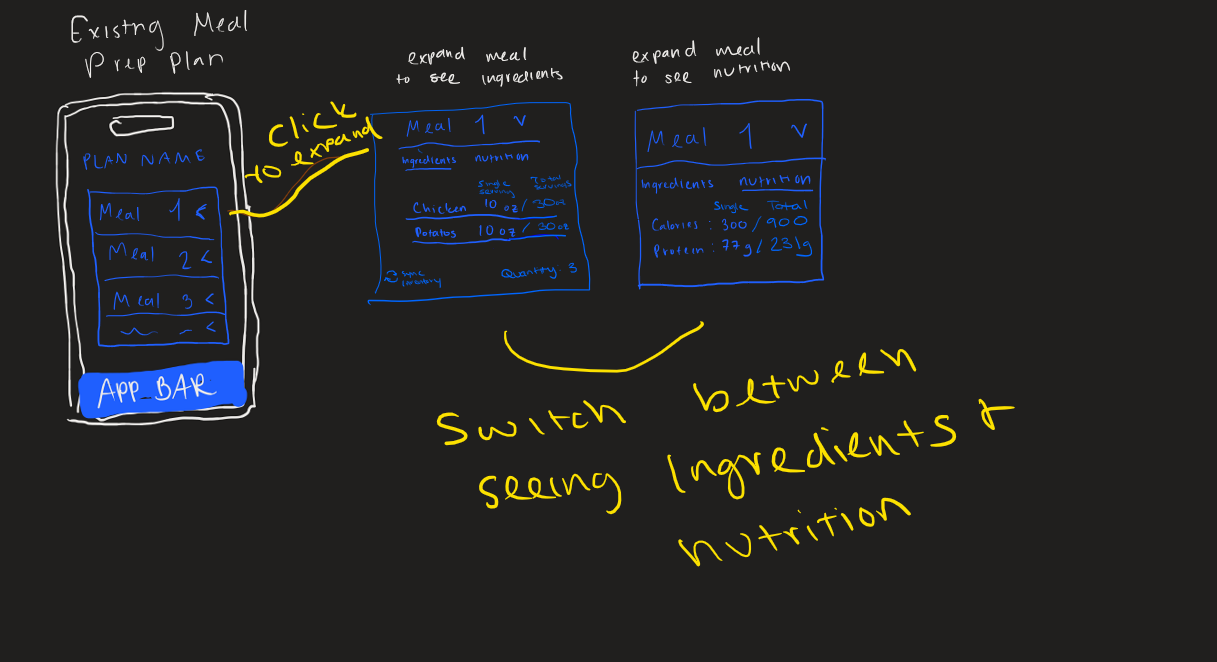 Existng Meal
Prep Plan
PLAN NAME
Meal 1 <
Meal 2 <
Meal 3 <
<
APP BAR
Click
to expand
expand meal
to see ingredients
Meal 1 v
Ingredients nutrition
Single serving Total servings
Chicken 10 oz / 30oz
Potatos 10 oz / 30oz
sync
inventory
Quantity: 3
expand meal
to see nutrition
Meal 1 v
Ingredients nutrition
Single Total
Calories : 300 / 900
Protein : 77g / 231g
Switch between
seeing Ingredients +
nutrition